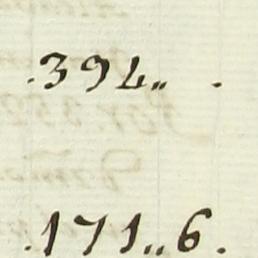 .394,, .
.171,,6.